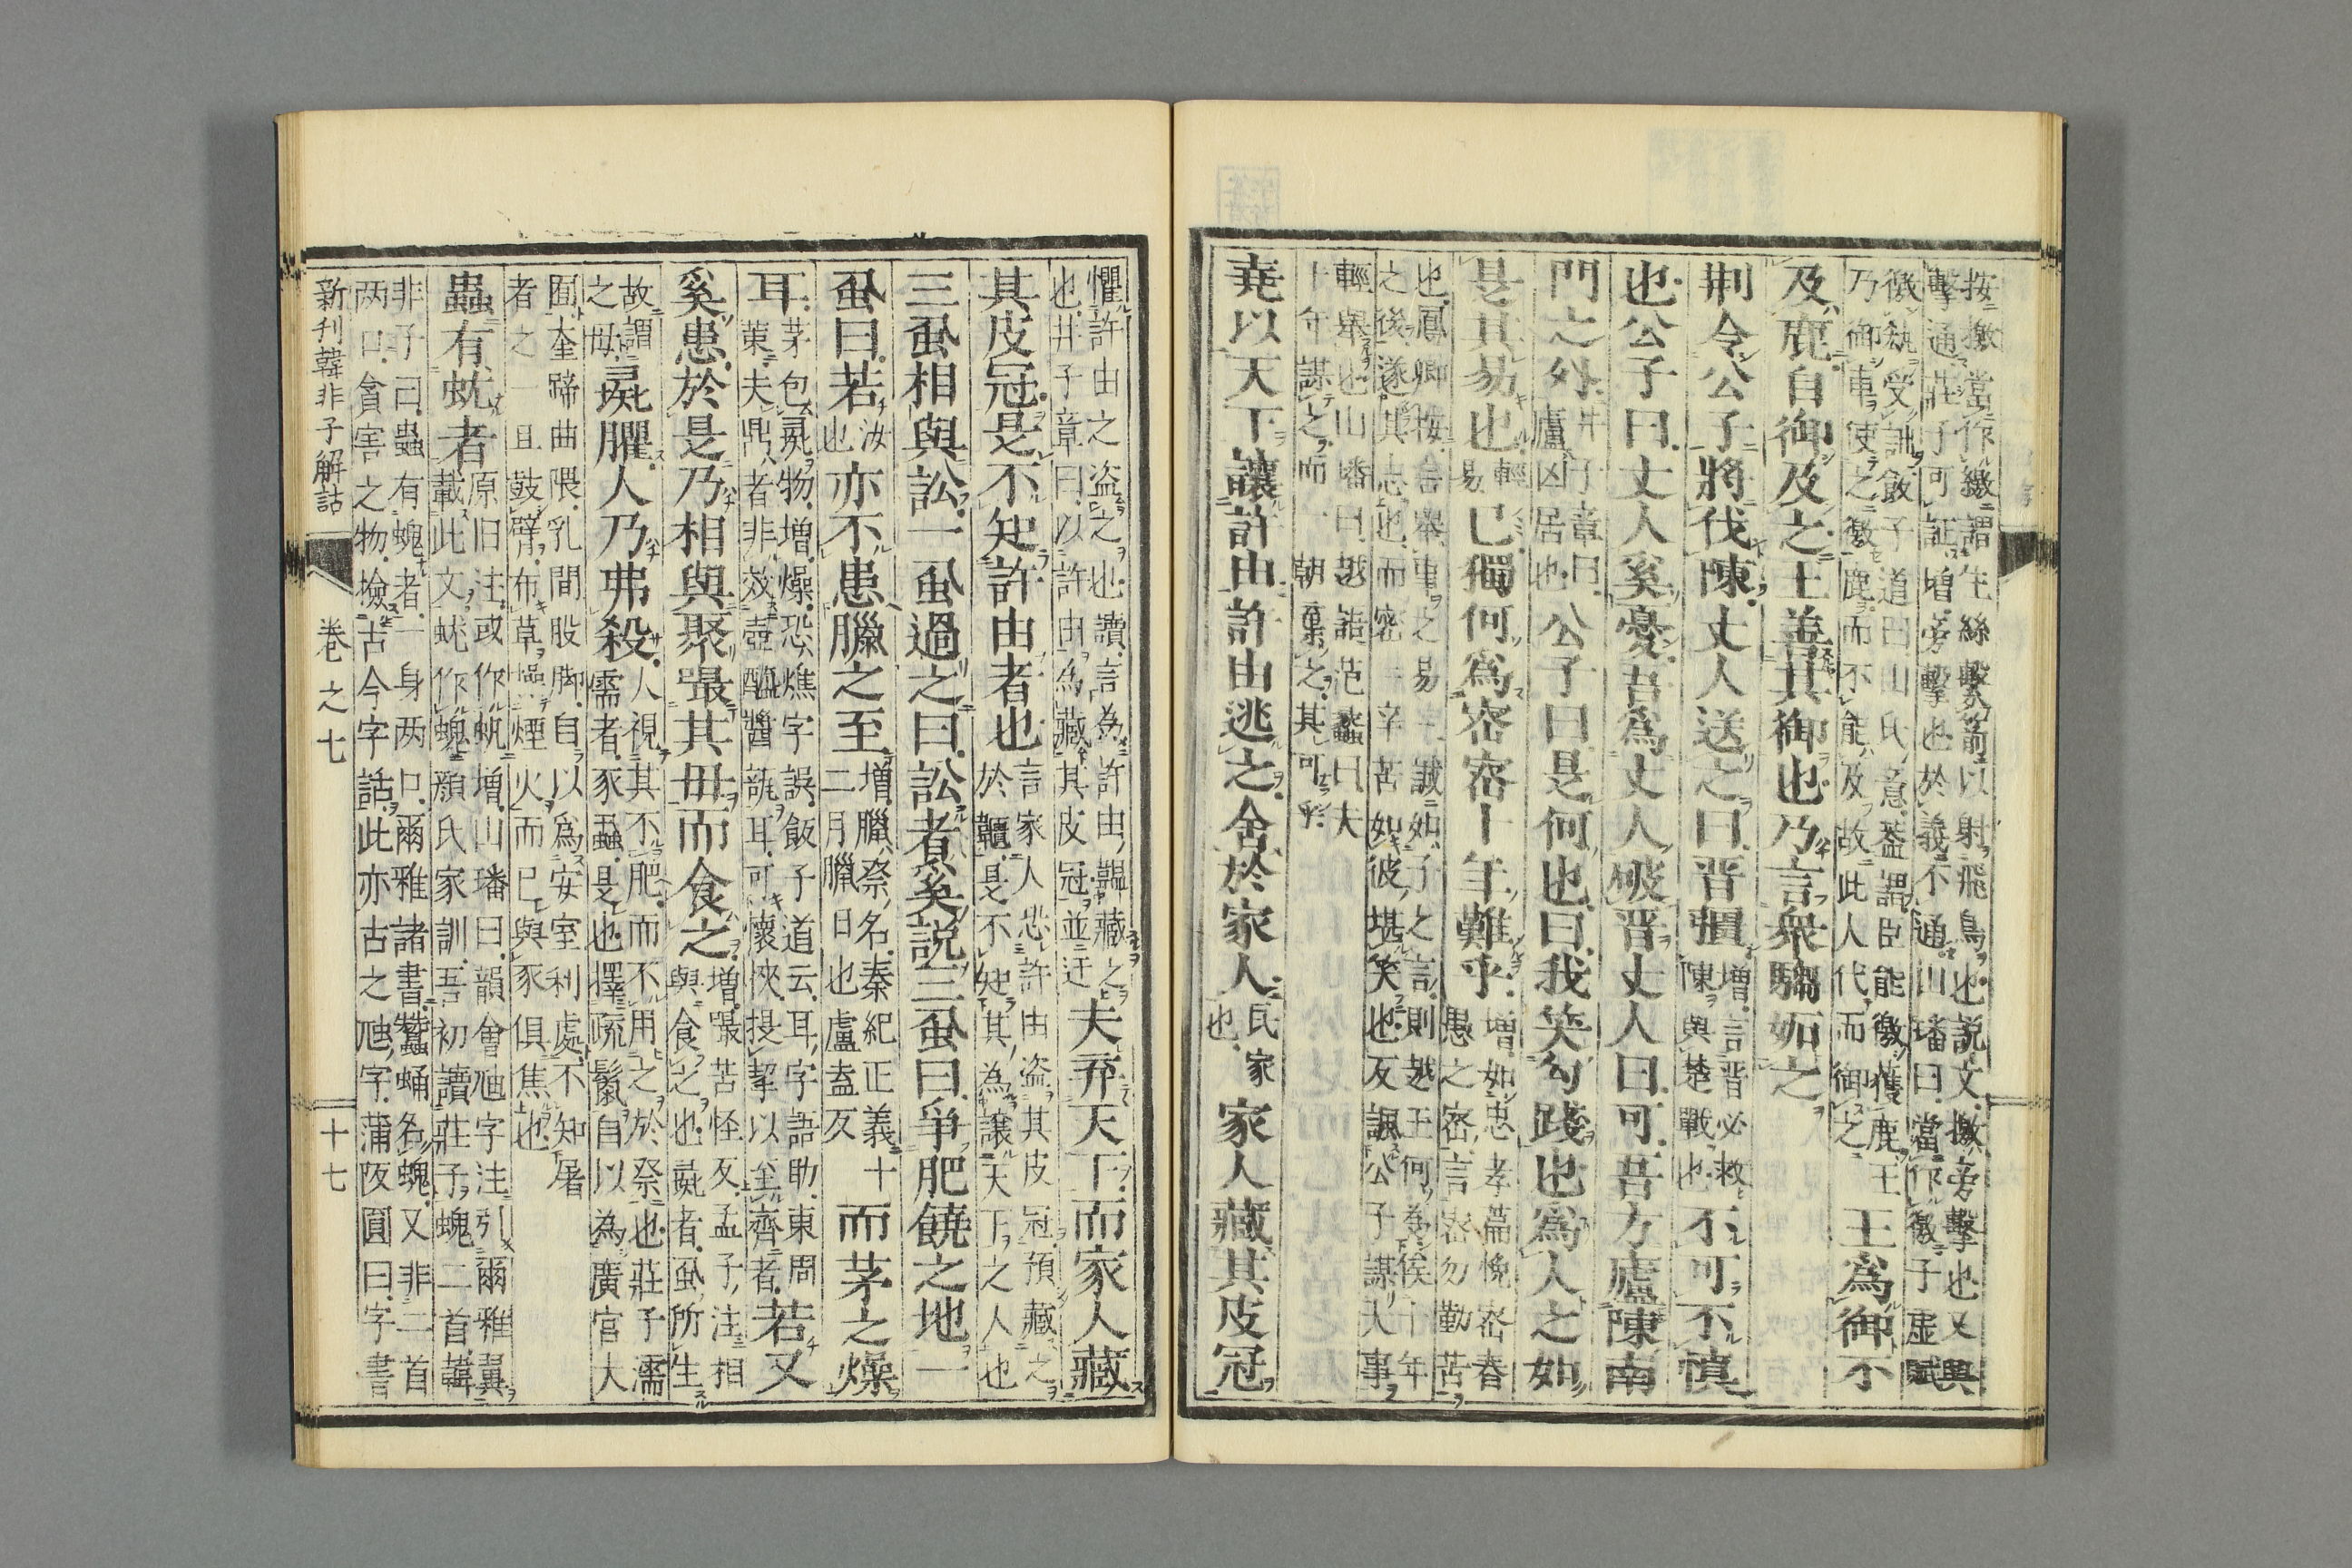 按撽當作繳謂生絲繫箭以射飛鳥也説文撽旁擊也又與
擊通莊子可証増旁擊也於義不通山璠曰當作徼子虚賦
徼𠊱受詘飯子道曰山氏意蓋謂臣能徼獲鹿王
乃御車使之徼鹿而不能及故此人代而御之
王爲御不
及鹿自御及之王善其御也乃言衆騶妬之
荆令公子將伐陳丈人送之曰晋彊
増言晋必救
陳與楚戰也
不可不愼
也公子曰丈人奚憂吾爲丈人破晋丈人曰可吾方廬陳南
門之外
井子章曰
廬凶居也
公子曰是何也曰我笑勾踐也爲人之如
是其易也
輕
易
已獨何爲密密十年難乎
増如忠孝篇悗密春
愚之密言密勿勤苦
也鳳卿按舍舉車之易字誠如子之言則越王何為俟十年
之後遂其志也而密一辛苦如彼堪笑也反諷公子謀大事
輕舉也山璠曰越語范蠡曰夫
十年謀之而一朝棄之其可乎
堯以天下讓許由許由逃之舍於家人
民家
也
家人藏其皮冠
懼許由之盜之也讀言為許由韞藏之
也井子章曰以許由為藏其皮冠並迂
夫弃天下而家人藏
其皮冠是不知許由者也
言家人恐許由盜其皮冠預藏之
於韞是不知其為讓天下之人也
三虱相與訟一虱過之曰訟者奚説三虱曰爭肥饒之地一
虱曰若
汝
也
亦不患臘之至
増臘祭名秦紀正義十
二月臘日也盧盍反
而茅之燥
耳
茅包㲋物増燥恐燋字誤飯子道云耳字語助東周
菓夫鼎者非效壺醯醬甀耳可懷挾提挈以至齊者
若又
奚患於是乃相與聚嘬其毋而食之
増嘬苦怪反孟子注相
與食之也彘者虱所生
故謂
之母
彘臞人乃弗殺
人視其不肥而不用之於祭也莊子濡
儒者豕蝨是也擇疏鬣自以為廣宮大
囿奎蹏曲隈乳間股脚自以為安室利處不知屠
者之一旦鼓臂布草操煙火而已與豕俱焦也
蟲有蚘者
原旧注或作蚖増山璠曰韻會虺字注引爾雅翼
載此文蚘作螝顔氏家訓吾初讀莊子螝二首韓
非子曰蟲有螝者一身两口爾雅諸書蠶蛹名螝又非二首
两口貪害之物撿古今字詁此亦古之虺字蒲阪圓曰字書
新刊韓非子解詁
卷之七
十七